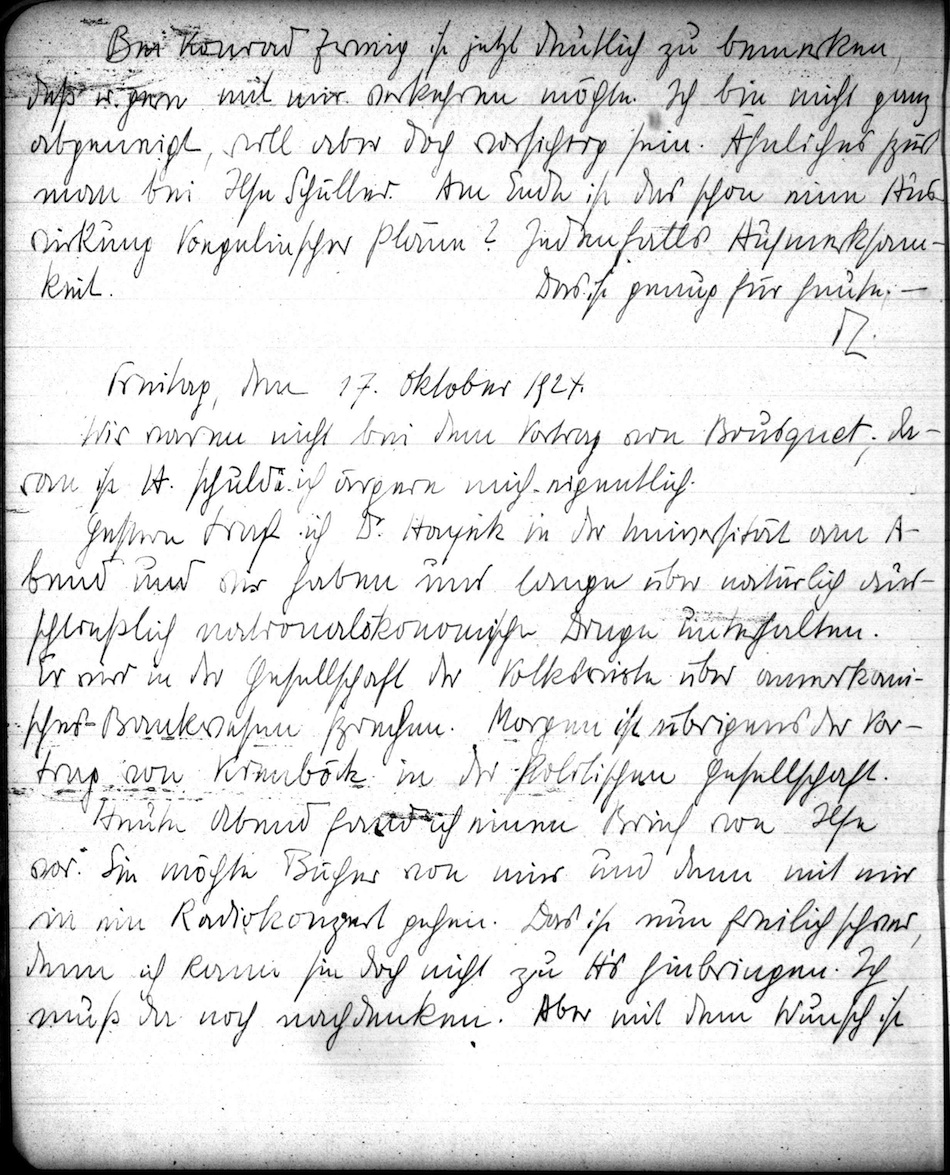 Bei Konrad Zweig ist jetzt deutlich zu bemerken,
daß er gern mit mir verkehren möchte. Ich bin nicht ganz
abgeneigt, will aber doch vorsichtig sein. Ähnliches spürt
man bei Ilse Schüller. Am Ende ist das schon eine Aus-
wirkung Voegelinscher Pläne? Jedenfalls Aufmerksam-
keit. Das ist genug für heute. —
Freitag, den 17. Oktober 1924.
Wir waren nicht bei dem Vortrag von Bousquet; da-
ran ist H. schuld. ich ärgere mich eigentlich.
Gestern traf ich Dr. Hayek in der Universität am A-
bend und wir haben uns lange über natürlich aus-
schließlich nationalökonomische Dinge unterhalten.
Er wird in der Gesellschaft der Volkswirte über amerikani-
sches Bankwesen sprechen. Morgen ist übrigens der Vor-
trag von in der Politischen Gesellschaft.
Heute Abend fand ich einen Brief von Ilse
vor. Sie möchte Bücher von mir und dann mit mir
in ein Radiokonzert gehen. Das ist nun freilich schwer,
denn ich kann sie doch nicht zu H's hinbringen. Ich
muß da noch nachdenken. Aber mit dem Wunsch ist